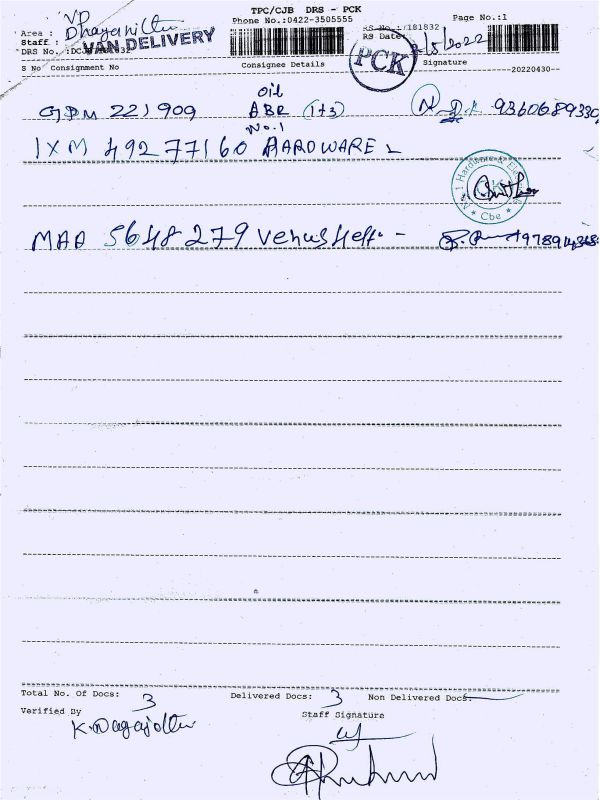 TPC/CJB DRS - PCK
Phone No.:0422-3505555
Page No.:1
VP
Area :
Staff : VAN DELIVERY
RS No.:/181832
RS Date: /5/2022
PCK
DRS No. :DCJB/181832
S No Consignment No Consignee Details Signature
--20220430--
oil
GDM 221909 ABR (1+3) 9360689330
No.1
IXM 49277160 HARDWARE
No.1 Hardware & Cbe
MAA 5648279 Venus
Total No. Of Docs: 3 Delivered Docs: 3 Non Delivered Docs:
Verified By
Staff Signature